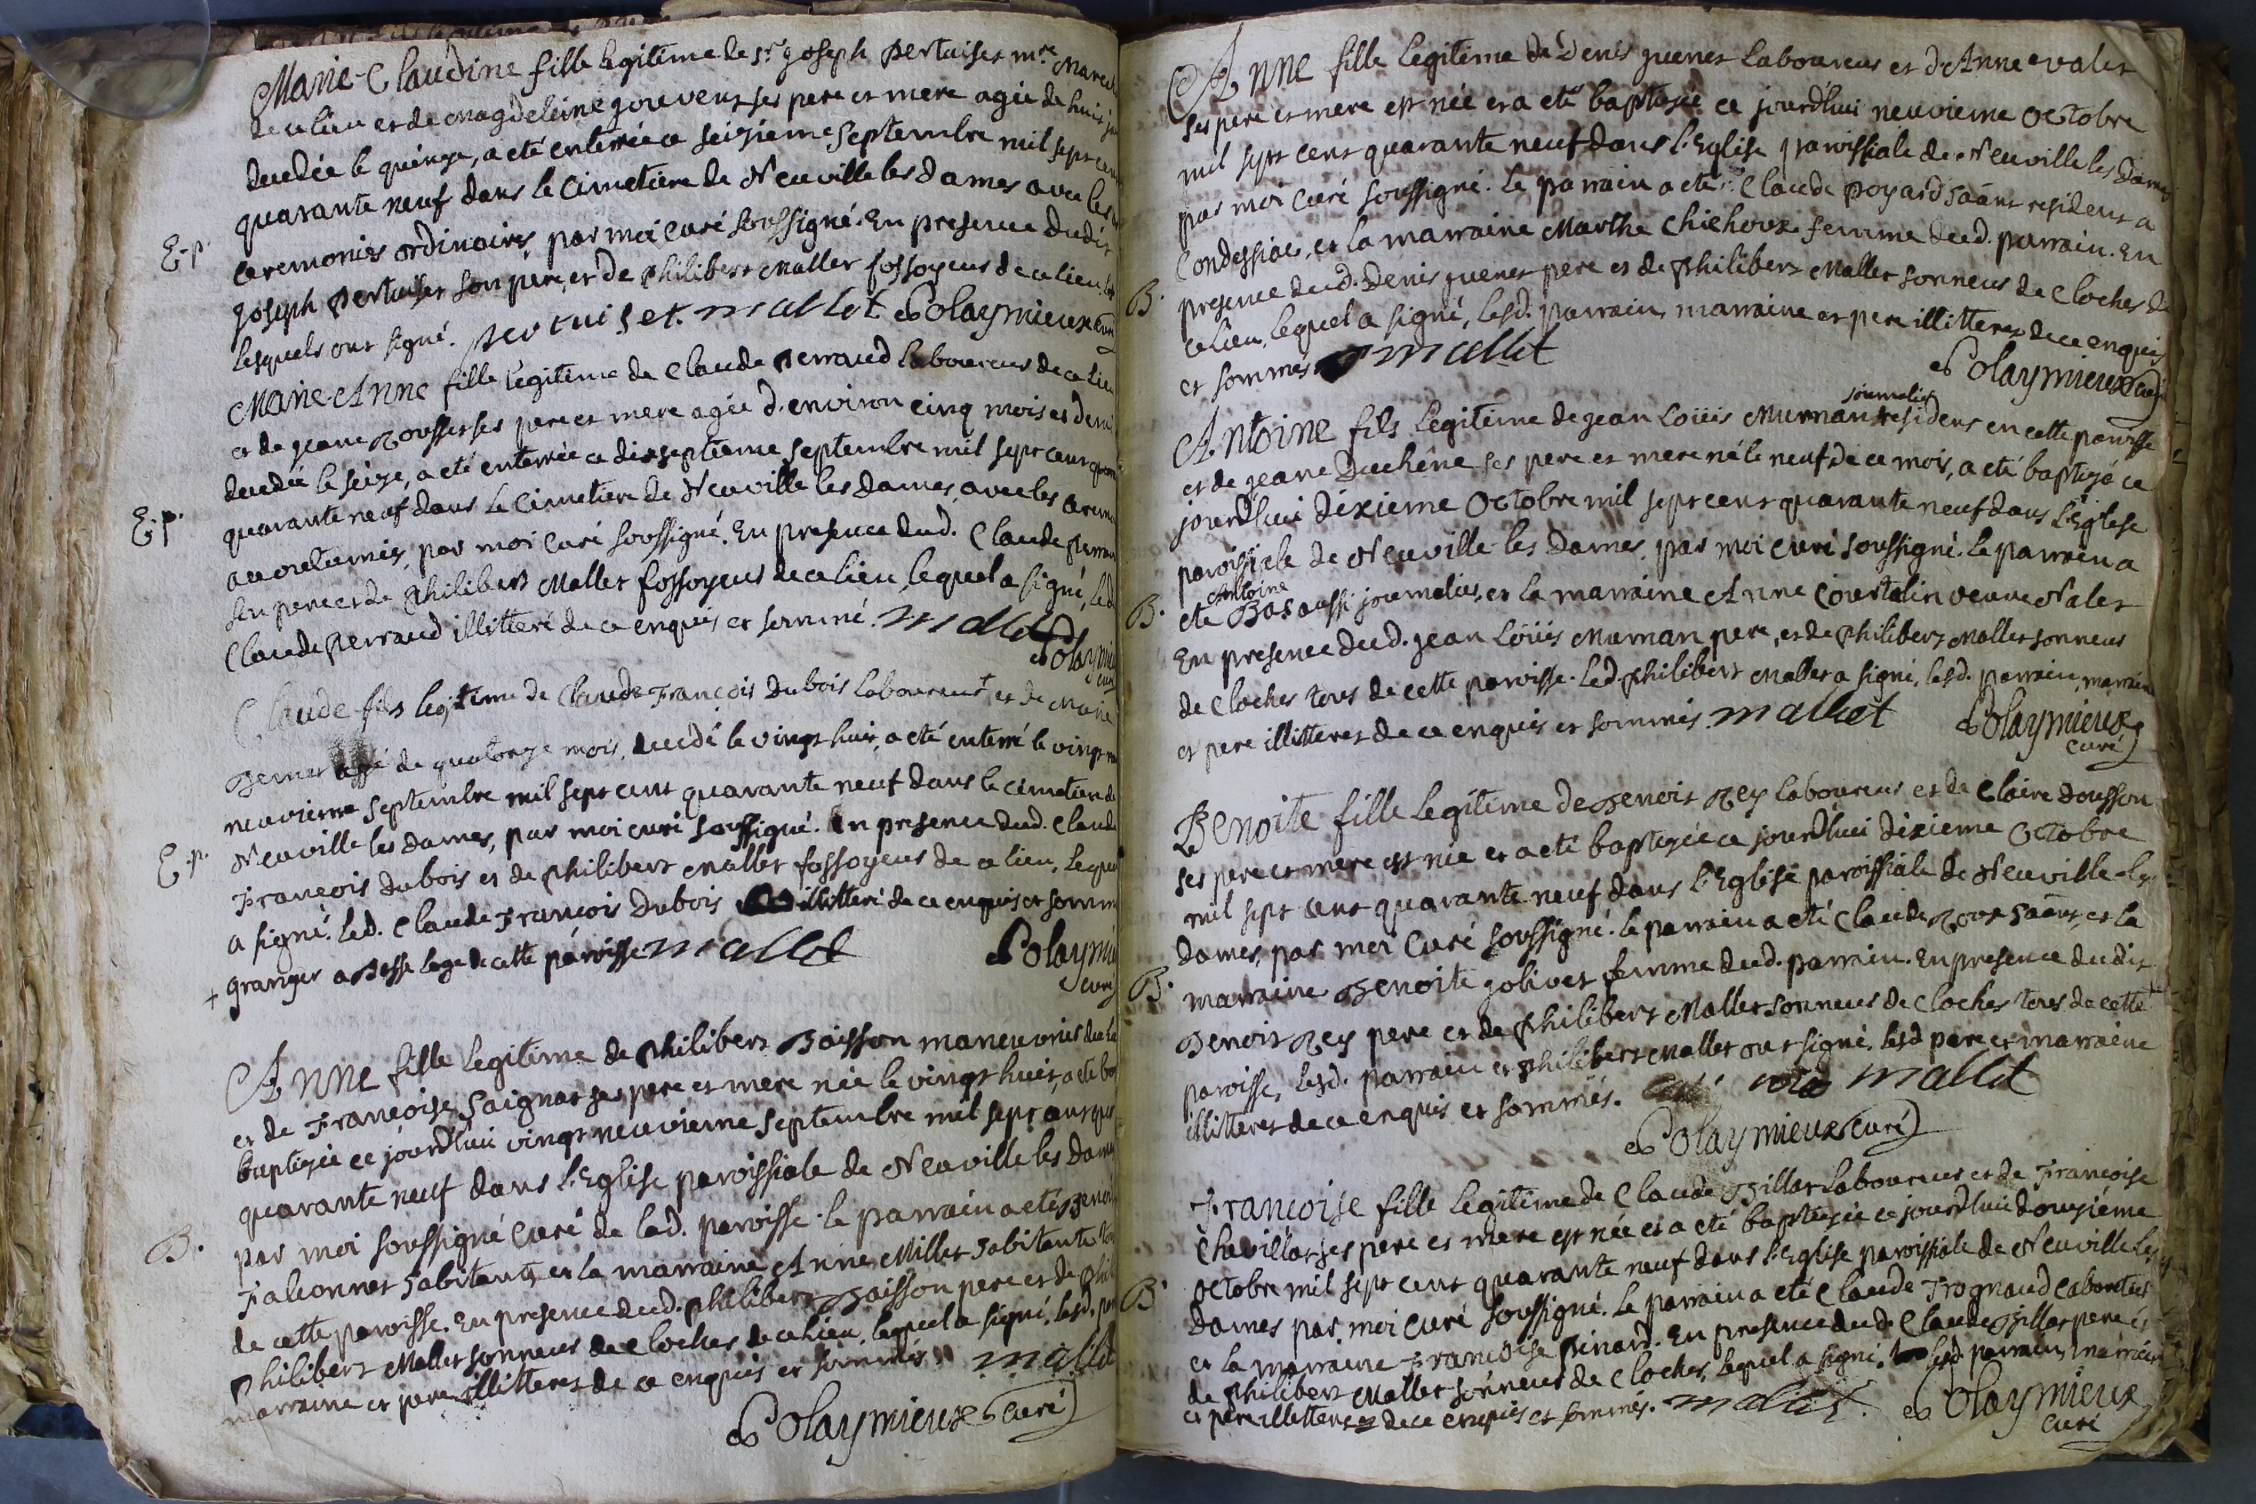 Marie-Claudine fille legitime de Sr. Joseph Pertuiset mre. Marec
de ce lieu et de Magdeleine Jouvent ses pere et mere agée de huit jo
decedée le quinze, a eté enterrée ce seizieme septembre mil sept cen
quarante neuf dans le Cimetiere de Neuville les Dames avec les
E.p.
ceremonies ordinaires, par moi curé soussigné. En presence dudit
Joseph Pertuiset son pere, et de philibert Mallet fossoyeur de ce lieu
lesquels ont signé. pertuiset. mallet Polaymieux curé
Marie-Anne fille legitime de Claude Perraud laboureur de ce lieu
et de jeane Rousset ses pere et mere agée d'environ cinq mois et demi
decedée le seize, a eté enterrée ce dixseptieme septembre mil sept cent
E.p.
quarante neuf dans le Cimetiere de Neuville les Dames, avec les cerem
accoutumées, par moi curé soussigné. En presence dud. Claude perrau
son pere et de philibert Mallet fossoyeur de ce lieu, lequel a signé, led.
Claude Perraud illitteré de ce enquis et sommé. mallet
Polaymieu
curé
Claude fils legitime de Claude François Dubois laboureur+ et de Marie
Bernet agé de quatorze mois, decedé le vingt huit, a eté enterré le vingt
neuvieme septembre mil sept cent quarante neuf dans le cimetiere de
E.p.
Neuville les Dames, par moi curé soussigné. En presence dud. Claude
François Dubois et de philibert Mallet fossoyeur de ce lieu, lequel
a signé. led. Claude François Dubois illitteré de ce enquis et somm
+ granger a Besse lage de cette paroisse mallet Polaymi
curé
Anne fille legitime de philibert Boisson maneuvrier de ce
et de Françoise Saignat ses pere et mere née le vingt huit, a eté bap
baptizée ce jourd'hui vingt neuvieme septembre mil sept cent qua
quarante neuf dans l'Eglise paroissiale de Neuville les Dames
par moi soussigné curé de lad. paroisse. le parrain a eté Benoit
B.
Falconnet habitant, et la marraine Anne Millet habitante
de cette paroisse. En presence dud. philibert Boisson pere et de phil
philibert Mallet sonneur de cloches de ce lieu, lequel a signé, lesd. par
marraine et pere illitterez de ce enquis et sommés. mallet
Polaymieux curé
Anne fille legitime de Denis guenet laboureur et d'Anne valet
ses pere et mere est née et a eté baptizée ce jourd'hui neuvieme octobre
mil sept cent quarante neuf dans l'Eglise paroissiale de Neuville les Dames
par moi curé soussigné. le parrain a eté Claude poyard habitant resident a
Condessiat, et la marraine Marthe Chichoux femme dud. parrain. En
B.
presence dud. Denis guenet pere et de philibert Mallet sonneur de cloches de
ce lieu, lequel a signé, lesd. parrain, marraine et pere illitterez de ce enquis
et sommés mallet
Polaymieux curé
journalier
Antoine fils legitime de jean Loüis Murnan residens en cette paroisse
et de jeane Duchêne ses pere et mere né le neuf de ce mois, a eté baptizé ce
jourd'hui dixieme octobre mil sept cent quarante neuf dans l'Eglise
paroissiale de Neuville les Dames, par moi curé soussigné. le parrain a
Antoine
B.
eté Bas aussi journalier, et la marraine Anne Courtalin veuve Nalet
En presence dud. jean Loüis Murnan pere, et de philibert Mallet sonneur
de cloches tous de cette paroisse. led. philibert Mallet a signé, lesd. parrain, marraine
et pere illitterez de ce enquis et sommés mallet Polaymieux
curé
Benoite fille legitime de Benoit Rey laboureur et de Claire Dousson
ses pere et mere est née et a eté baptizée ce jourd'hui dixieme octobre
mil sept cent quarante neuf dans l'Eglise paroissiale de Neuville les
Dames, par moi curé soussigné. le parrain a eté Claude Roux habitant, et la
B.
marraine Benoite jolivet femme dud. parrain. En presence dudit
Benoit Rey pere et de philibert Mallet sonneur de cloches tous de cette
paroisse, lesd. parrain et philibert Mallet ont signé. lesd pere et marraine
illitterez de ce enquis et sommés. mallet
Polaymieux curé
Francoise fille legitime de Claude Billat laboureur et de Francoise
Chevillat ses pere et mere est née et a eté baptizée ce jourd'hui douzième
B.
octobre mil sept cent quarante neuf dans l'Eglise paroissiale de Neuville les
Dames par moi curé soussigné. le parrain a eté Claude Frognaud cabaretier
et la marraine Francoise Pinard. En presence dud. Claude Billat pere et
de philibert Mallet sonneur de cloches, lequel a signé. lesd. parrain, marraine
et pere illitterez de ce enquis et sommés. mallet. Polaymieux
curé